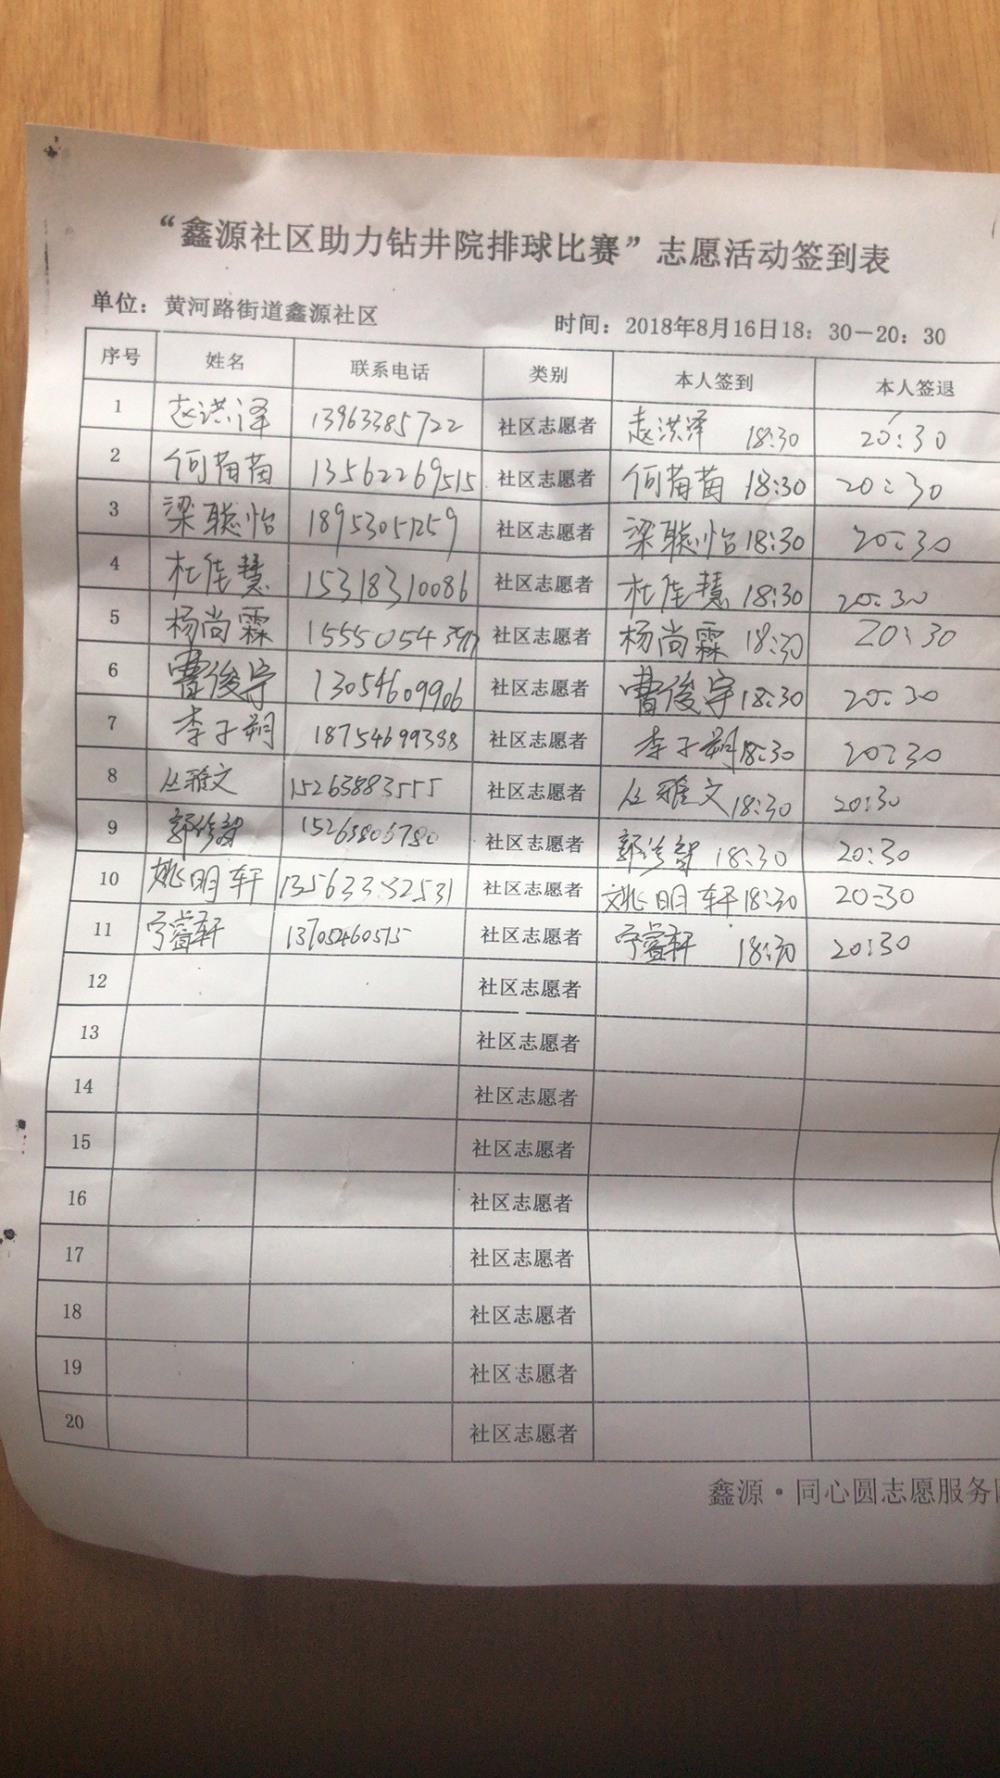 “鑫源社区助力钻井院排球比赛”志愿活动签到表
单位：黄河路街道鑫源社区
时间：2018年8月16日18：30－20：30
序号 姓名 联系电话 类别 本人签到 本人签退
1 赵洪泽 13963385722 社区志愿者 赵洪泽 18:30 20:30
2 何苗苗 13562269515 社区志愿者 何苗苗 18:30 20:30
3 梁聪怡 18953051259 社区志愿者 梁聪怡 18:30 20:30
4 杜佳慧 15318310086 社区志愿者 杜佳慧 18:30 20:30
5 杨尚霖 社区志愿者 杨尚霖 18:30 20:30
6 曹俊宇 13054609906 社区志愿者 曹俊宇 18:30 20:30
7 李子朔 18754699388 社区志愿者 李子朔 18:30 20:30
8 丛雅文 15263883555 社区志愿者 丛雅文 18:30 20:30
9 社区志愿者 18:30 20:30
10 姚明轩 社区志愿者 姚明轩 18:30 20:30
11 宁睿轩 13705460515 社区志愿者 宁睿轩 18:30 20:30
12 社区志愿者
13 社区志愿者
14 社区志愿者
15 社区志愿者
16 社区志愿者
17 社区志愿者
18 社区志愿者
19 社区志愿者
20 社区志愿者
鑫源·同心圆志愿服务